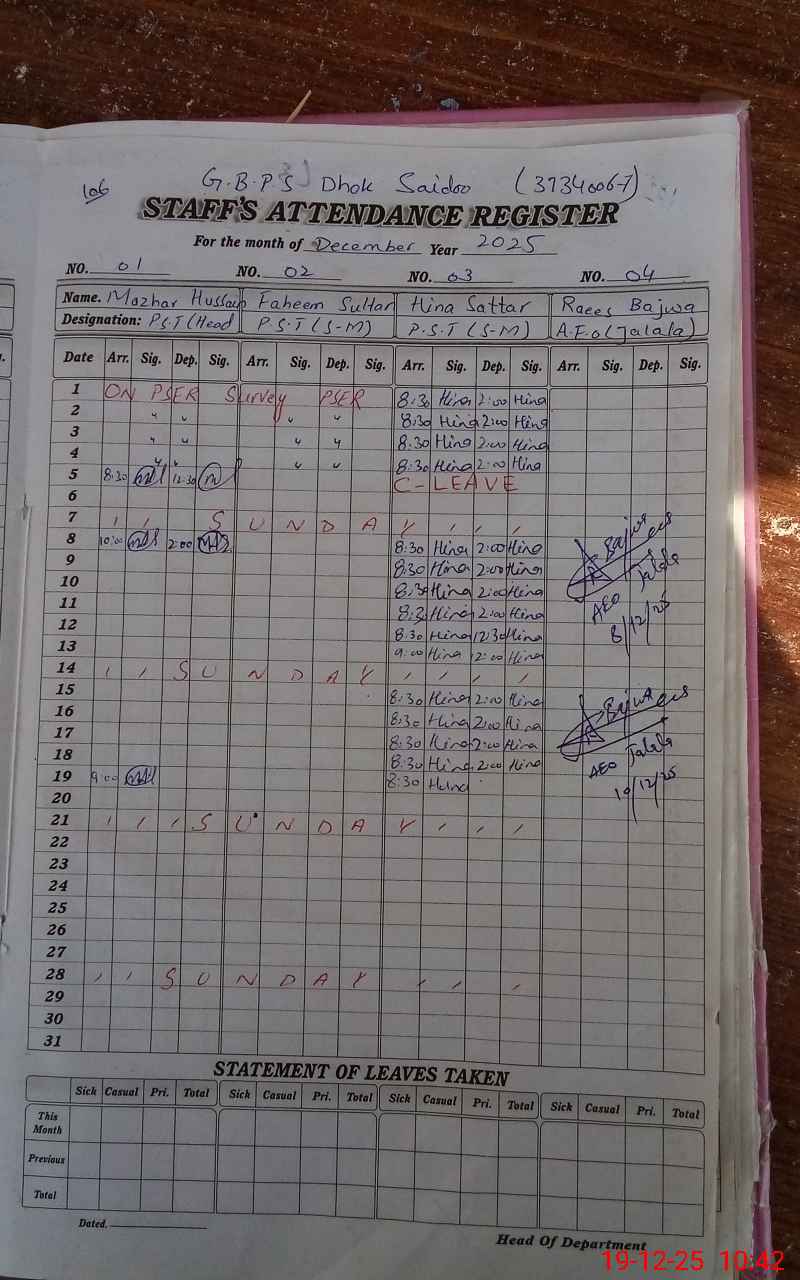 106 G.B.P.S Dhok Saidoo (37340067)
STAFF'S ATTENDANCE REGISTER
For the month of December Year 2025
NO. 01 NO. 02 NO. 03 NO. 04
Name. Mazhar Hussain Faheem Sultan Hina Sattar Raees Bajwa
Designation: P.S.T (Head P.S.T (S-M) P.S.T (S-M) A.E.O (Jalala)
Date Arr. Sig. Dep. Sig. Arr. Sig. Dep. Sig. Arr. Sig. Dep. Sig. Arr. Sig. Dep. Sig.
1 ON PSER Survey PSER 8:30 Hina 2:00 Hina
2 " " " " 8:30 Hina 2:00 Hina
3 " " " " 8:30 Hina 2:00 Hina
4 " " " " 8:30 Hina 2:00 Hina
5 8:30 12:30 C-LEAVE
6
7 , , S U N D A Y , , ,
8 10:00 2:00 8:30 Hina 2:00 Hina Bajwa
9 8:30 Hina 2:00 Hina
10 8:30 Hina 2:00 Hina AEO Jalala
11 8:30 Hina 2:00 Hina 8/12/25
12 8:30 Hina 12:30 Hina
13 9:00 Hina 12:00 Hina
14 , , S U N D A Y , , , ,
15 8:30 Hina 2:00 Hina Bajwa
16 8:30 Hina 2:00 Hina
17 8:30 Hina 2:00 Hina
18 8:30 Hina 2:00 Hina AEO Jalala
19 9:00 8:30 Hina 19/12/25
20
21 , , , S U N D A Y , , ,
22
23
24
25
26
27
28 , , S U N D A Y , , ,
29
30
31
STATEMENT OF LEAVES TAKEN
Sick Casual Pri. Total Sick Casual Pri. Total Sick Casual Pri. Total Sick Casual Pri. Total
This Month
Previous
Total
Dated.
Head Of Department
19-12-25 10:42